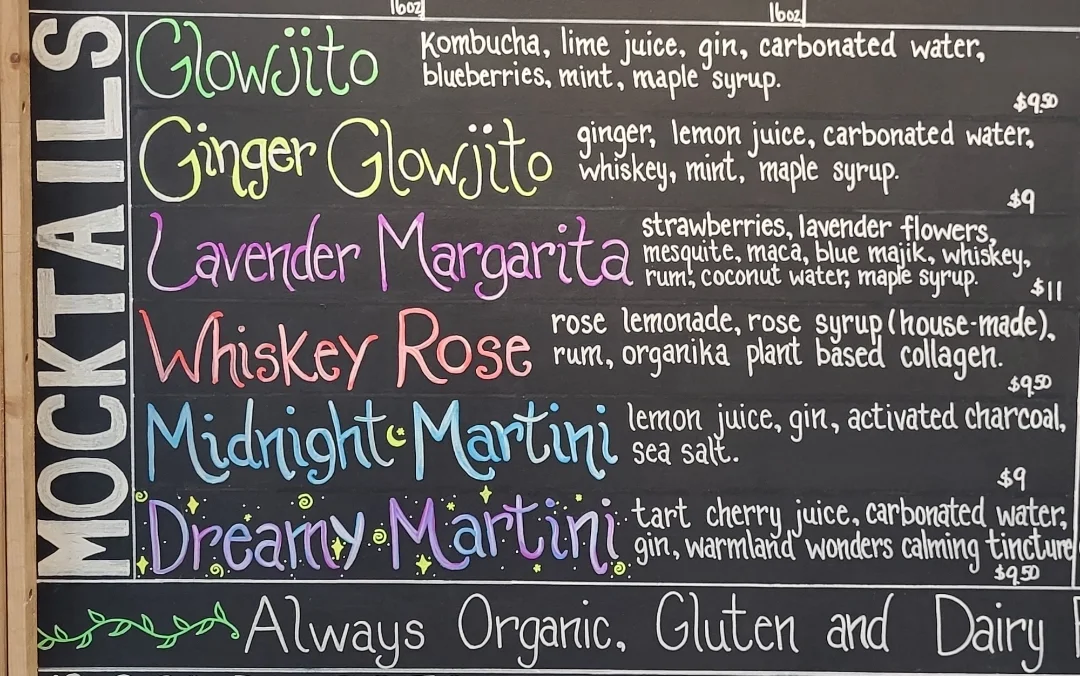 16oz 16oz
MOCKTAILS
Glowjito
Kombucha, lime juice, gin, carbonated water,
blueberries, mint, maple syrup.
$9.50
Ginger Glowjito
ginger, lemon juice, carbonated water,
whiskey, mint, maple syrup.
$9
Lavender Margarita
strawberries, lavender flowers,
mesquite, maca, blue majik, whiskey,
rum, coconut water, maple syrup.
$11
Whiskey Rose
rose lemonade, rose syrup (house-made),
rum, organika plant based collagen.
$9.50
Midnight Martini
lemon juice, gin, activated charcoal,
sea salt.
$9
Dreamy Martini
tart cherry juice, carbonated water,
gin, warmland wonders calming tincture
$9.50
Always Organic, Gluten and Dairy